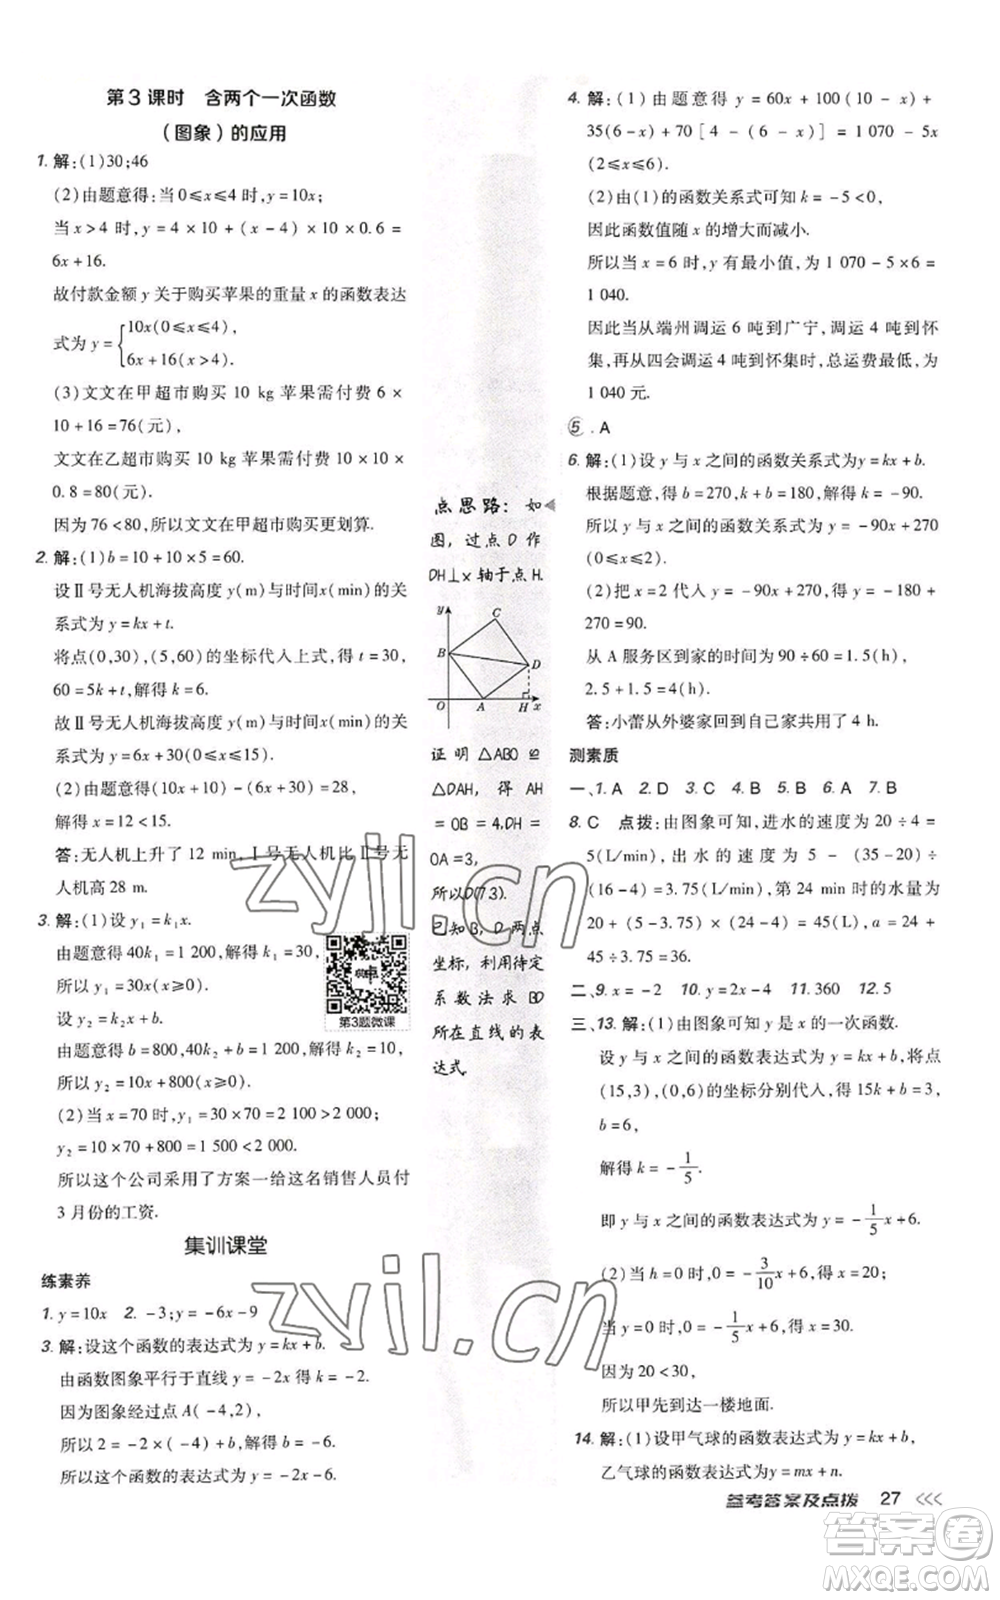 第3课时 含两个一次函数
(图象)的应用
1. 解:(1)30;46
(2)由题意得:当0≤x≤4时,y=10x;
当x>4时,y=4×10+(x-4)×10×0.6=
6x+16.
故付款金额y关于购买苹果的重量x的函数表达
式为y={10x(0≤x≤4),
6x+16(x>4).
(3)文文在甲超市购买10 kg苹果需付费6×
10+16=76(元),
文文在乙超市购买10 kg苹果需付费10×10
×0.8=80(元).
因为76<80,所以文文在甲超市购买更划算.
2. 解:(1)b=10+10×5=60.
设Ⅱ号无人机海拔高度y(m)与时间x(min)的关
系式为y=kx+t.
将点(0,30),(5,60)的坐标代入上式,得t=30,
60=5k+t,解得k=6.
故Ⅱ号无人机海拔高度y(m)与时间x(min)的关
系式为y=6x+30(0≤x≤15).
(2)由题意得(10x+10)-(6x+30)=28,
解得x=12<15.
答:无人机上升了12 min,Ⅰ号无人机比Ⅱ号无
人机高28 m.
3. 解:(1)设y₁=k₁x.
由题意得40k₁=1 200,解得k₁=30,
所以y₁=30x(x≥0).
设y₂=k₂x+b.
由题意得b=800,40k₂+b=1 200,解得k₂=10,
所以y₂=10x+800(x≥0).
(2)当x=70时,y₁=30×70=2 100>2 000;
y₂=10×70+800=1 500<2 000.
所以这个公司采用了方案一给这名销售人员付
3月份的工资.
第3题微课
集训课堂
练素养
1. y=10x 2. -3;y=-6x-9
3. 解:设这个函数的表达式为y=kx+b.
由函数图象平行于直线y=-2x得k=-2.
因为图象经过点A(-4,2),
所以2=-2×(-4)+b,解得b=-6.
所以这个函数的表达式为y=-2x-6.
点思路:如
图,过点D作
DH⊥x轴于点H.
y
C
B
D
O A H x
证明△ABO≌
△DAH,得AH
=OB=4,DH=
OA=3,
所以D(7,3).
已知B,D两点
坐标,利用待定
系数法求BD
所在直线的表
达式.
4. 解:(1)由题意得y=60x+100(10-x)+
35(6-x)+70[4-(6-x)]=1 070-5x
(2≤x≤6).
(2)由(1)的函数关系式可知k=-5<0,
因此函数值随x的增大而减小.
所以当x=6时,y有最小值,为1 070-5×6=
1 040.
因此当从端州调运6吨到广宁,调运4吨到怀
集,再从四会调运4吨到怀集时,总运费最低,为
1 040元.
5. A
6. 解:(1)设y与x之间的函数关系式为y=kx+b.
根据题意,得b=270,k+b=180,解得k=-90.
所以y与x之间的函数关系式为y=-90x+270
(0≤x≤2).
(2)把x=2代入y=-90x+270,得y=-180+
270=90.
从A服务区到家的时间为90÷60=1.5(h),
2.5+1.5=4(h).
答:小蕾从外婆家回到自己家共用了4 h.
测素质
一、1. A 2. D 3. C 4. B 5. B 6. A 7. B
8. C 点拨:由图象可知,进水的速度为20÷4=
5(L/min),出水的速度为5-(35-20)÷
(16-4)=3.75(L/min),第24 min时的水量为
20+(5-3.75)×(24-4)=45(L),a=24+
45÷3.75=36.
二、9. x=-2 10. y=2x-4 11. 360 12. 5
三、13. 解:(1)由图象可知y是x的一次函数.
设y与x之间的函数表达式为y=kx+b,将点
(15,3),(0,6)的坐标分别代入,得15k+b=3,
b=6,
解得k=-1/5.
即y与x之间的函数表达式为y=-1/5x+6.
(2)当h=0时,0=-3/10x+6,解得x=20;
当y=0时,0=-1/5x+6,解得x=30.
因为20<30,
所以甲先到达一楼地面.
14. 解:(1)设甲气球的函数表达式为y=kx+b,
乙气球的函数表达式为y=mx+n.
参考答案及点拨 27
zyjl.cn
zyjl.cn
答案卷